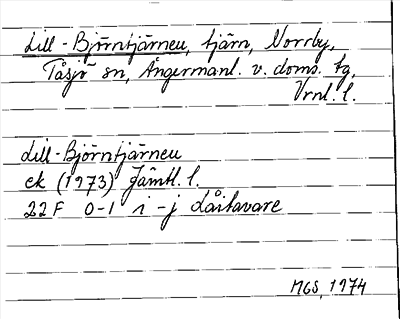 Lill-Björntjärnen, tjärn, Norrby,
Tåsjö sn, Ångermanl. v. doms. tg,
Vrnl. l.
Lill-Björntjärnen
ek (1973) Jämtl. l.
22F 0-1 i-j Låitavare
MGS, 1974